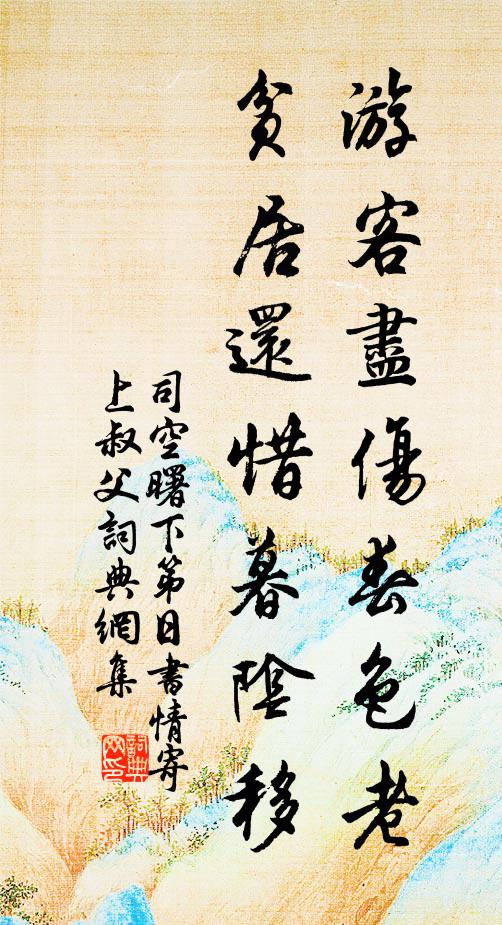 游客盡傷春色老
貧居還惜暮陰移
司空曙下第日書情寄
上叔父詞典網集
詞典
网印